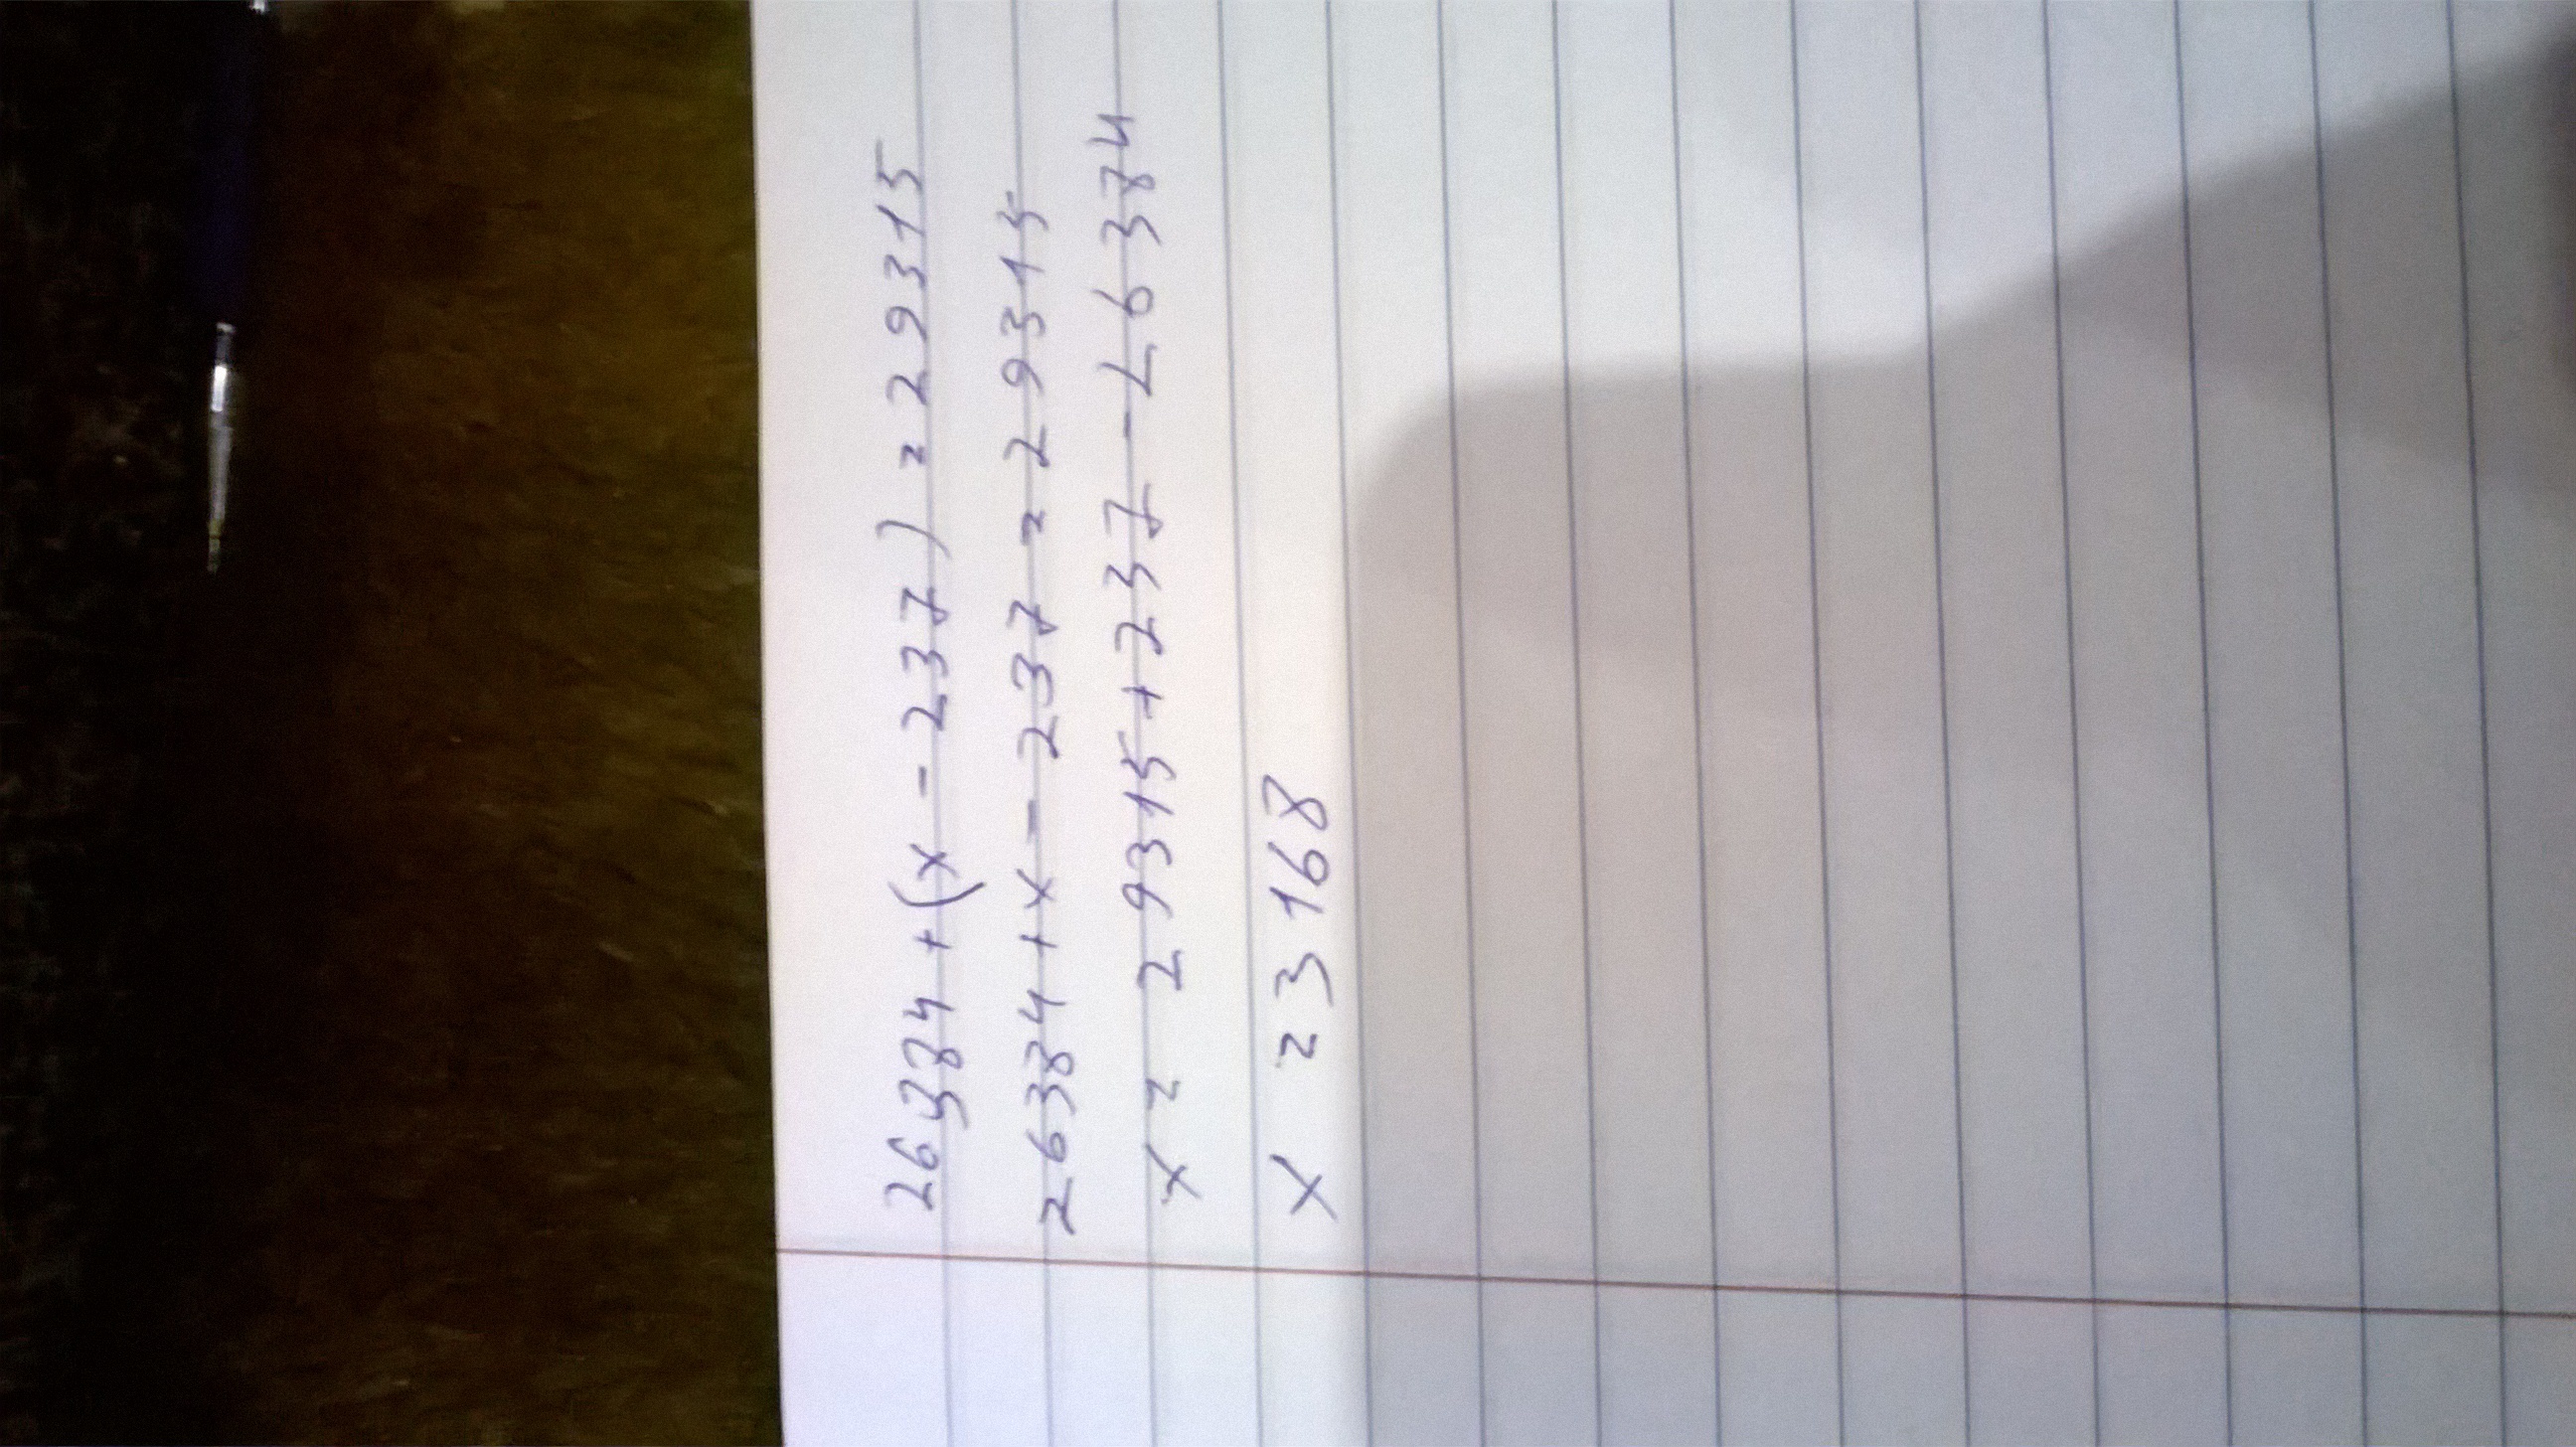 26384 + (x - 237) = 29315
26384 + x - 237 = 29315
x = 29315 + 237 - 26384
x = 3168